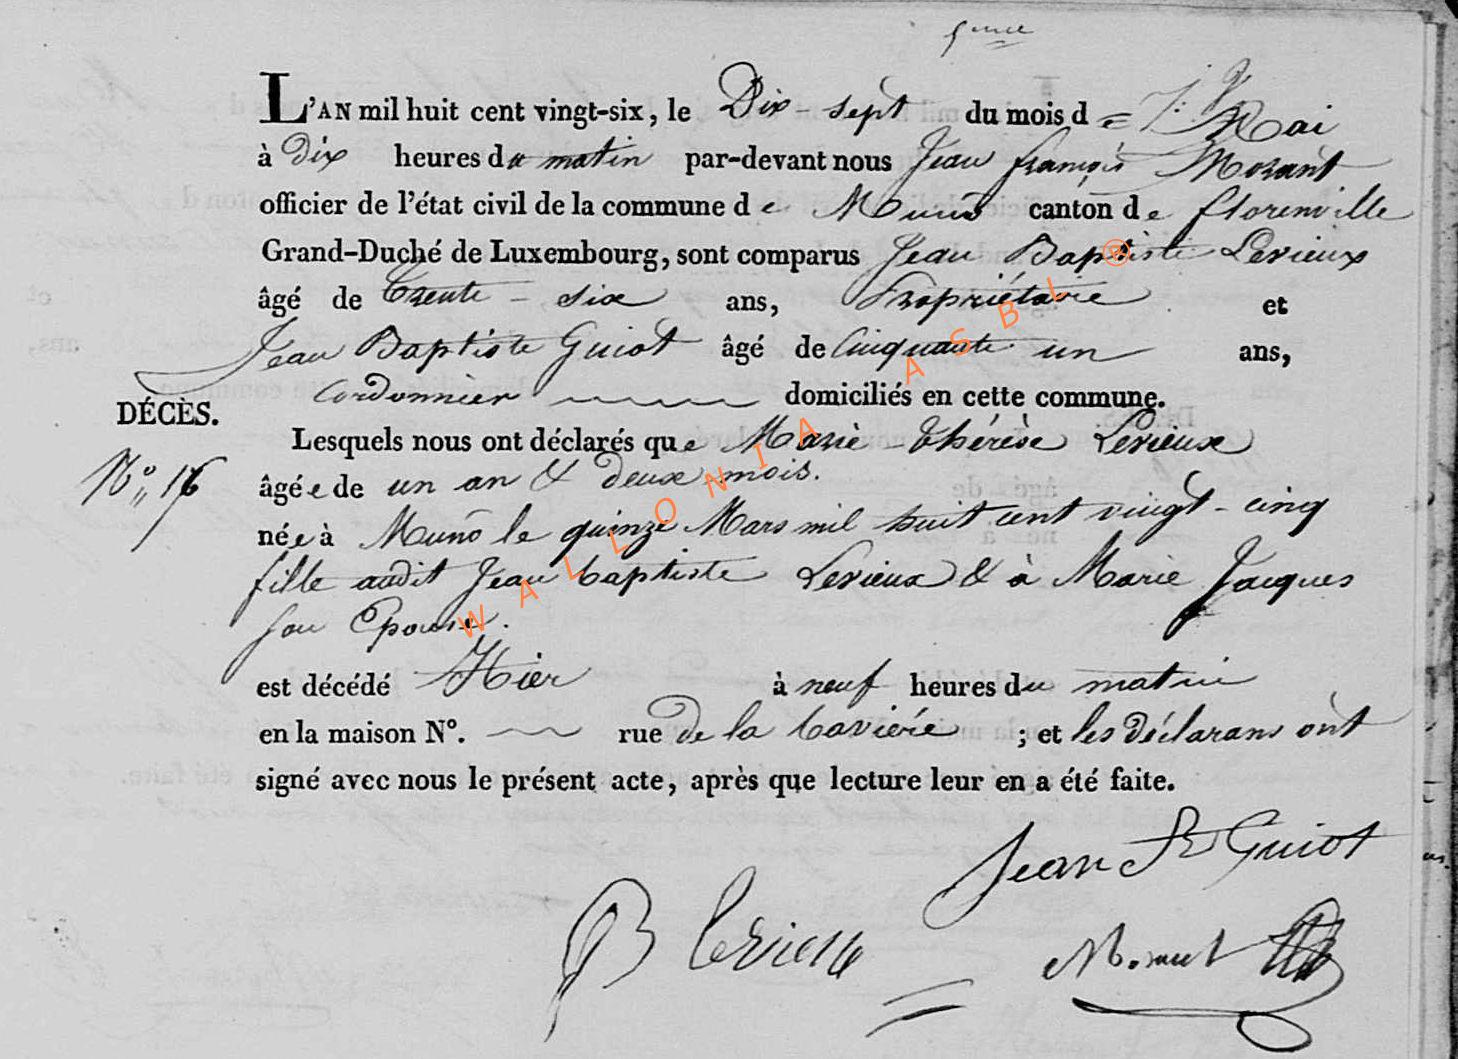 L'AN mil huit cent vingt-six, le Dix-sept du mois de Mai
à dix heures du matin par-devant nous Jean françois Morant
officier de l'état civil de la commune de Muno canton de florenville
Grand-Duché de Luxembourg, sont comparus Jean Baptiste Lerieux
âgé de trente-six ans, Propriétaire et
Jean Baptiste Guiot âgé de Cinquante un ans,
Cordonnier domiciliés en cette commune.
DÉCÈS.
Lesquels nous ont déclarés que Marie-thérèse Lerieux
N° 16
âgée de un an & deux mois.
née à Muno le quinze Mars mil huit cent vingt-cinq
fille audit Jean baptiste Lerieux & à Marie Jacques
son Epouse.
est décédé Hier à neuf heures du matin
en la maison N°. rue de la baviére ; et les déclarans ont
signé avec nous le présent acte, après que lecture leur en a été faite.
Jean Bt Guiot
JB lerieux
Morant
WALLONIA ASBL ®